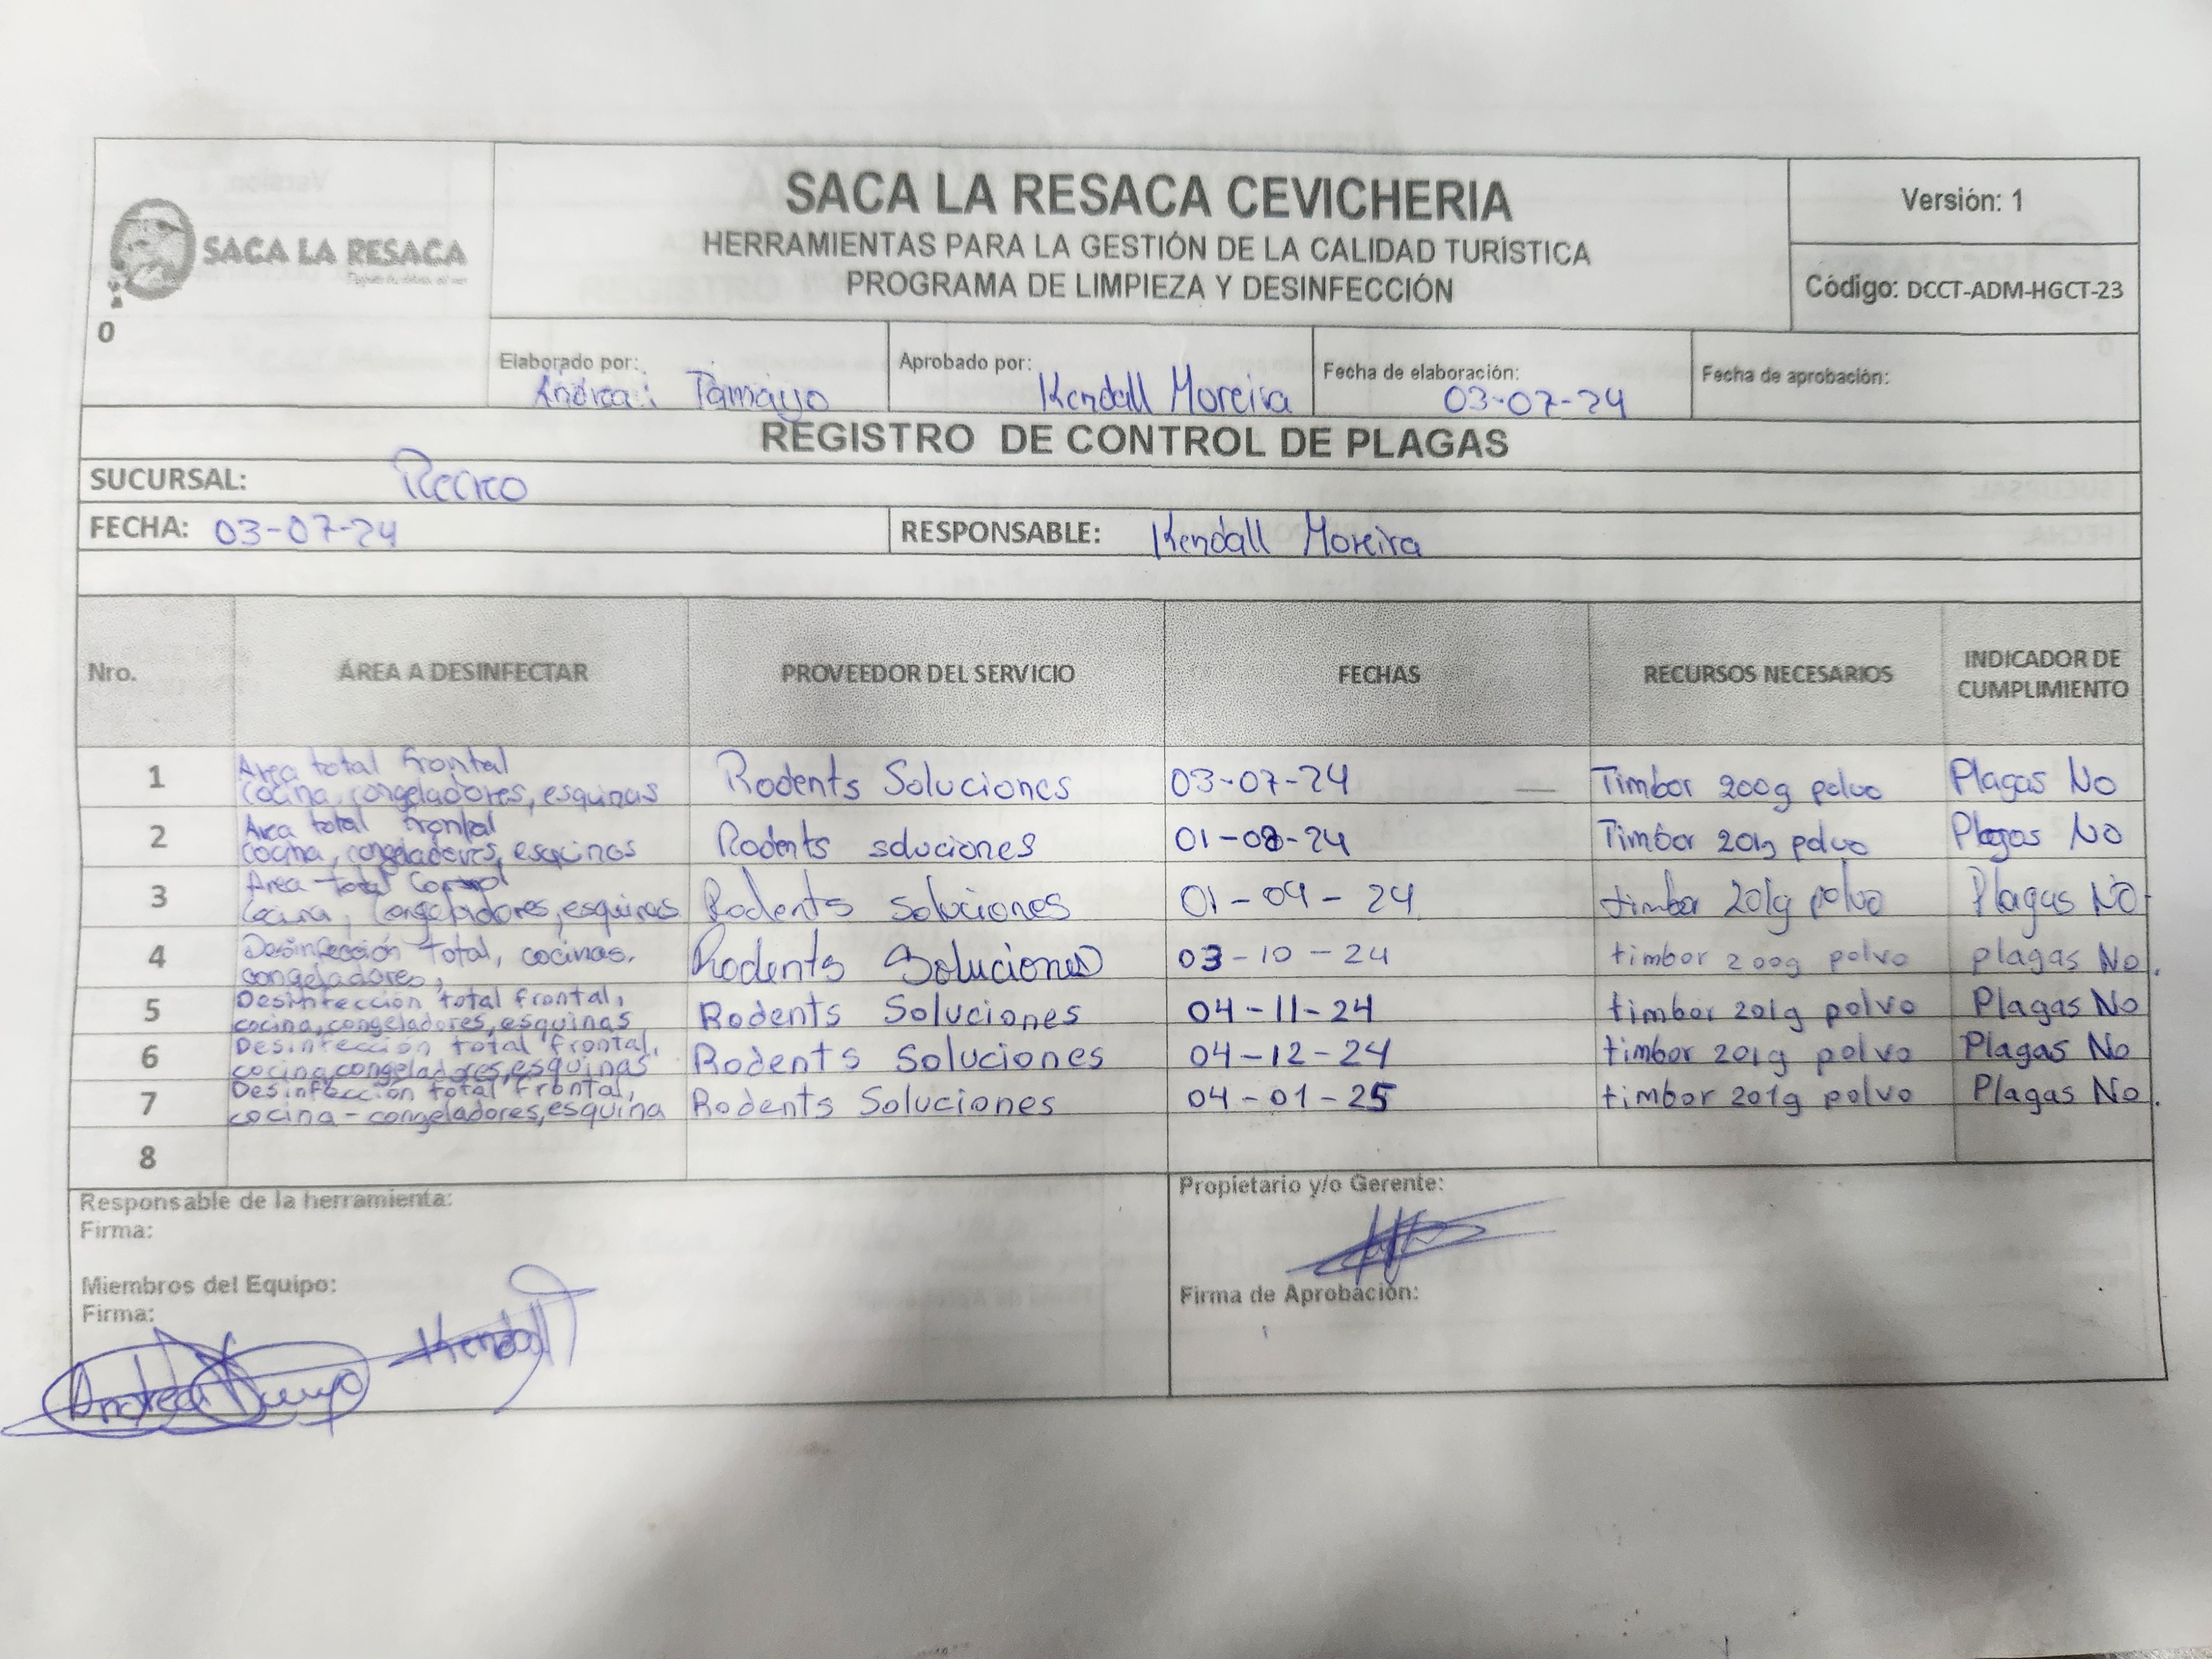 SACA LA RESACA
0
SACA LA RESACA CEVICHERIA
HERRAMIENTAS PARA LA GESTIÓN DE LA CALIDAD TURÍSTICA
PROGRAMA DE LIMPIEZA Y DESINFECCIÓN
Versión: 1
Código: DCCT-ADM-HGCT-23
Elaborado por: Andrea Tamayo
Aprobado por: Kendall Moreira
Fecha de elaboración: 03-07-24
Fecha de aprobación:
REGISTRO DE CONTROL DE PLAGAS
SUCURSAL: Recreo
FECHA: 03-07-24 RESPONSABLE: Kendall Moreira
Nro. ÁREA A DESINFECTAR PROVEEDOR DEL SERVICIO FECHAS RECURSOS NECESARIOS INDICADOR DE CUMPLIMIENTO
1 Area total frontal
cocina, congeladores, esquinas Rodents Soluciones 03-07-24 — Timbor 200g polvo Plagas No
2 Area total frontal
cocina, congeladores, esquinas Rodents soluciones 01-08-24 Timbor 201g polvo Plagas No
3 Area total
cocina, congeladores, esquinas Rodents soluciones 01-09-24 timbor 201g polvo Plagas NO
4 Desinfección total, cocinas,
congeladores, Rodents Soluciones 03-10-24 timbor 200g polvo plagas No.
5 Desinfección total frontal,
cocina, congeladores, esquinas Rodents Soluciones 04-11-24 timbor 201g polvo Plagas No
6 Desinfección total frontal,
cocina, congeladores, esquinas Rodents Soluciones 04-12-24 timbor 201g polvo Plagas No
7 Desinfección total frontal,
cocina - congeladores, esquina Rodents Soluciones 04-01-25 timbor 201g polvo Plagas No.
8
Responsable de la herramienta:
Firma:
Miembros del Equipo:
Firma:
Andrea Tamayo Kendall
Propietario y/o Gerente:
Firma de Aprobación: